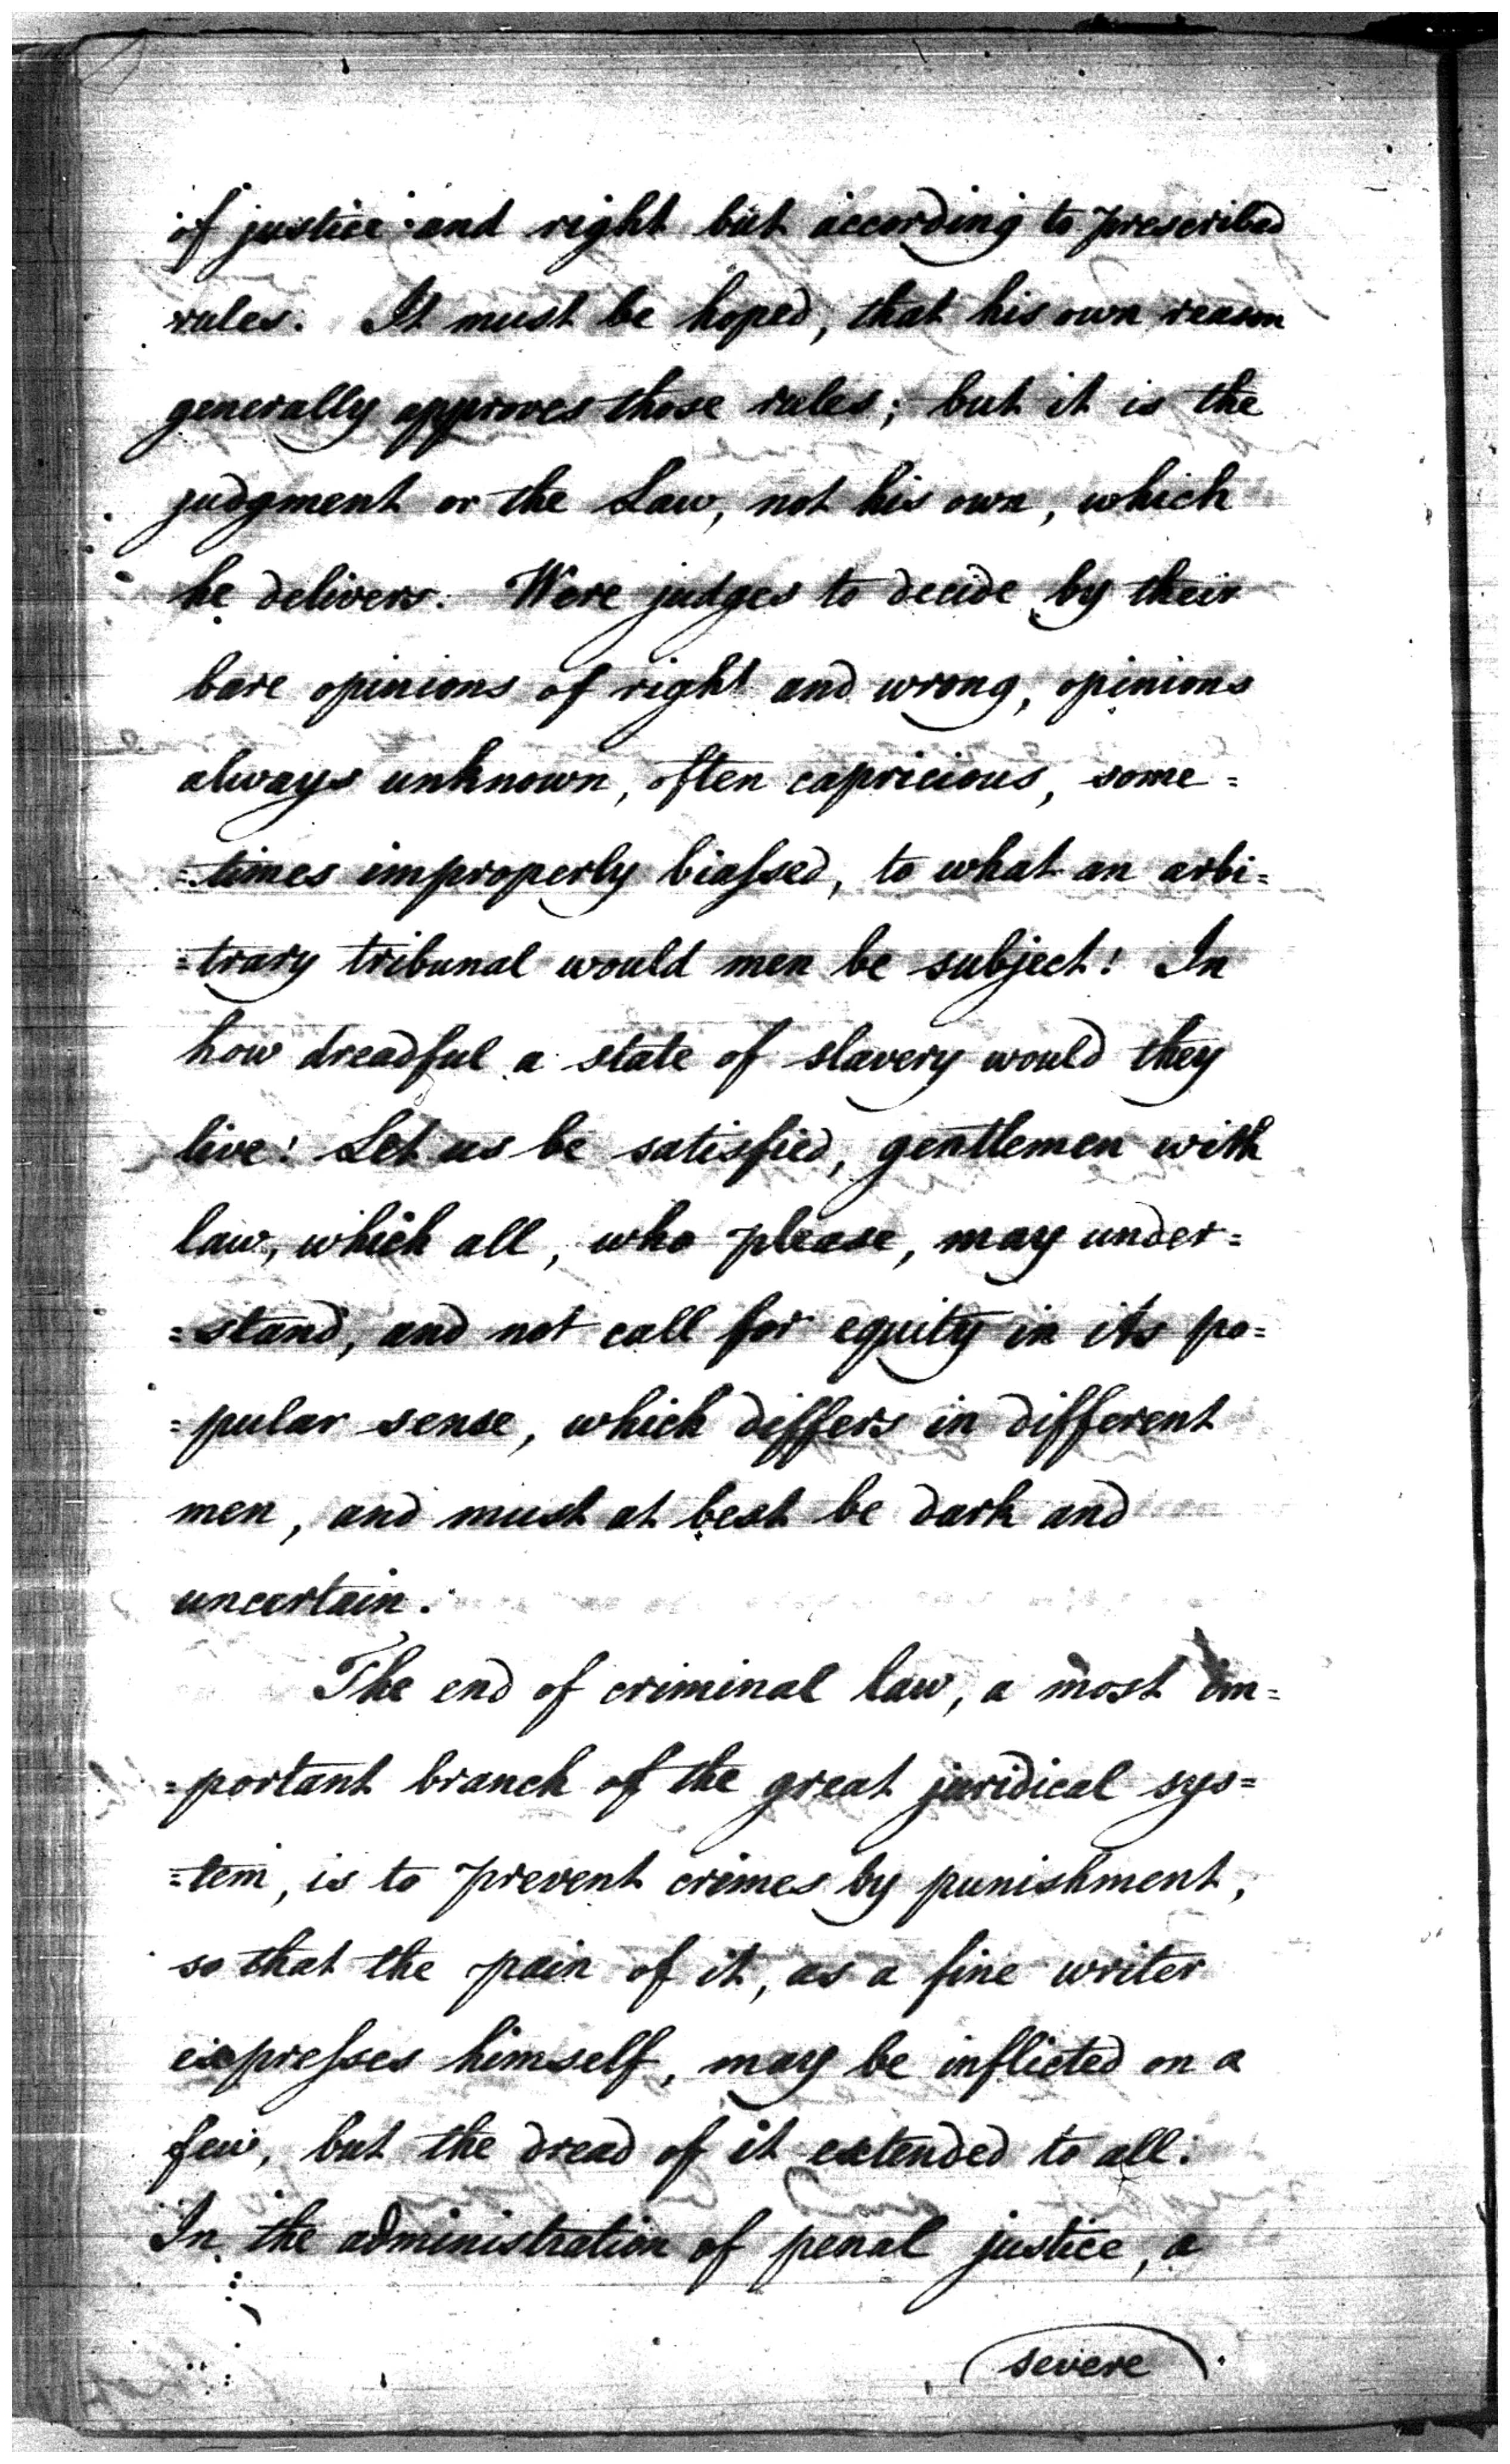 of justice and right but according to prescribed
rules. It must be hoped, that his own reason
generally approves those rules; but it is the
judgment or the Law, not his own, which
he delivers. Were judges to decide by their
bare opinions of right and wrong, opinions
always unknown, often capricious, some=
=times improperly biaſsed, to what an arbi=
=trary tribunal would men be subject! In
how dreadful a state of slavery would they
live! Let us be satisfied, gentlemen with
law, which all, who please, may under=
=stand, and not call for equity in its po=
=pular sense, which differs in different
men, and must at best be dark and
uncertain.
The end of criminal law, a most im=
=portant branch of the great juridical sys=
=tem, is to prevent crimes by punishment,
so that the pain of it, as a fine writer
expreſses himself, may be inflicted on a
few, but the dread of it extended to all.
In the administration of penal justice, a
severe